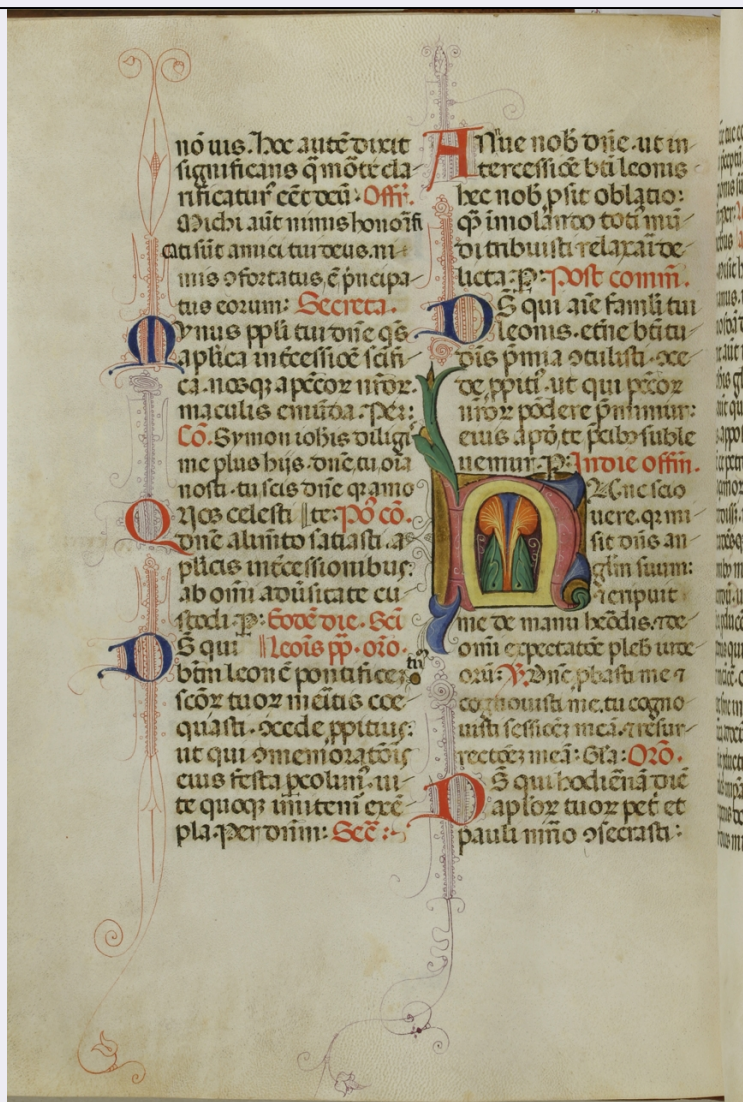 nō uis. hoc autē dixit
significans q̄ mōrte cla
rificatur̄ eēt deū. Offr̄.
Michi aūt nimis honori fi
cati sūt amici tui deus. ni
mis ɔfortatus, ē p̄ncipa
tus eorum: Secreta.
Mvnus ppl̄i tui dn̄e q̄s
aplica int̄cessiōe
cā. nosqꝫ a pc̄cor nr̄or.
maculis emūda. Per:
Cō. Symon ioh̄is diligi
me plus hijs. dn̄e, tu oīa
nosti. tu scis dn̄e qꝛ amo
Qvos celesti te: Pꝰ cō.
dn̄e alim̄to satiasti. a
pl̄icis int̄cessionibus:
ab omī aduīsitate cu
stodi. P: Eodē die. Sc̄i
Ds̄ qui Leōis pp̄. oro.
btm̄ leonē pontificez
sc̄or tuor mēitis coe
quasti. ɔcede p̄pitius:
ut qui ɔmemoratōis
eius festa p̄colim̄. ui
te quoqꝫ imitem̄ exē
pla. Per dnm̄: Sec̄:
tm̄
Annue nob̄ dn̄e. ut in
tercessiōe bt̄i leonis
hec nob̄ p̄sit oblatio:
q̄ imolando toti mū
di tribuisti relaxai de
licta. P: Post comm̄.
Ds̄ qui aīe famli tui
leonis. et̄ne bt̄itu
dīs p̄mia ɔtulisti. ɔce
de p̄piti. ut qui pc̄cor
nr̄or pōdere p̄mimur:
eius apd̄ te p̄cibꝫ suble
uemur. P: In die offm̄.
Nvnc scio
uere. qꝛ mi
sit dn̄s an
gl̄m suum:
ꝛ eripuit
me de manu hēodis. ꝛ de
omī expectatōe pleb̄ iude
orū: V. Dn̄e p̄basti me ꝛ
cognouisti me. tu cogno
uisti sessiōez meā. ꝛ resur
rectōez meā: Gl̄a: Orō.
Ds̄ qui hodiēnā diē
aplor tuor pet̄ et
pauli mr̄io ɔsecrasti: